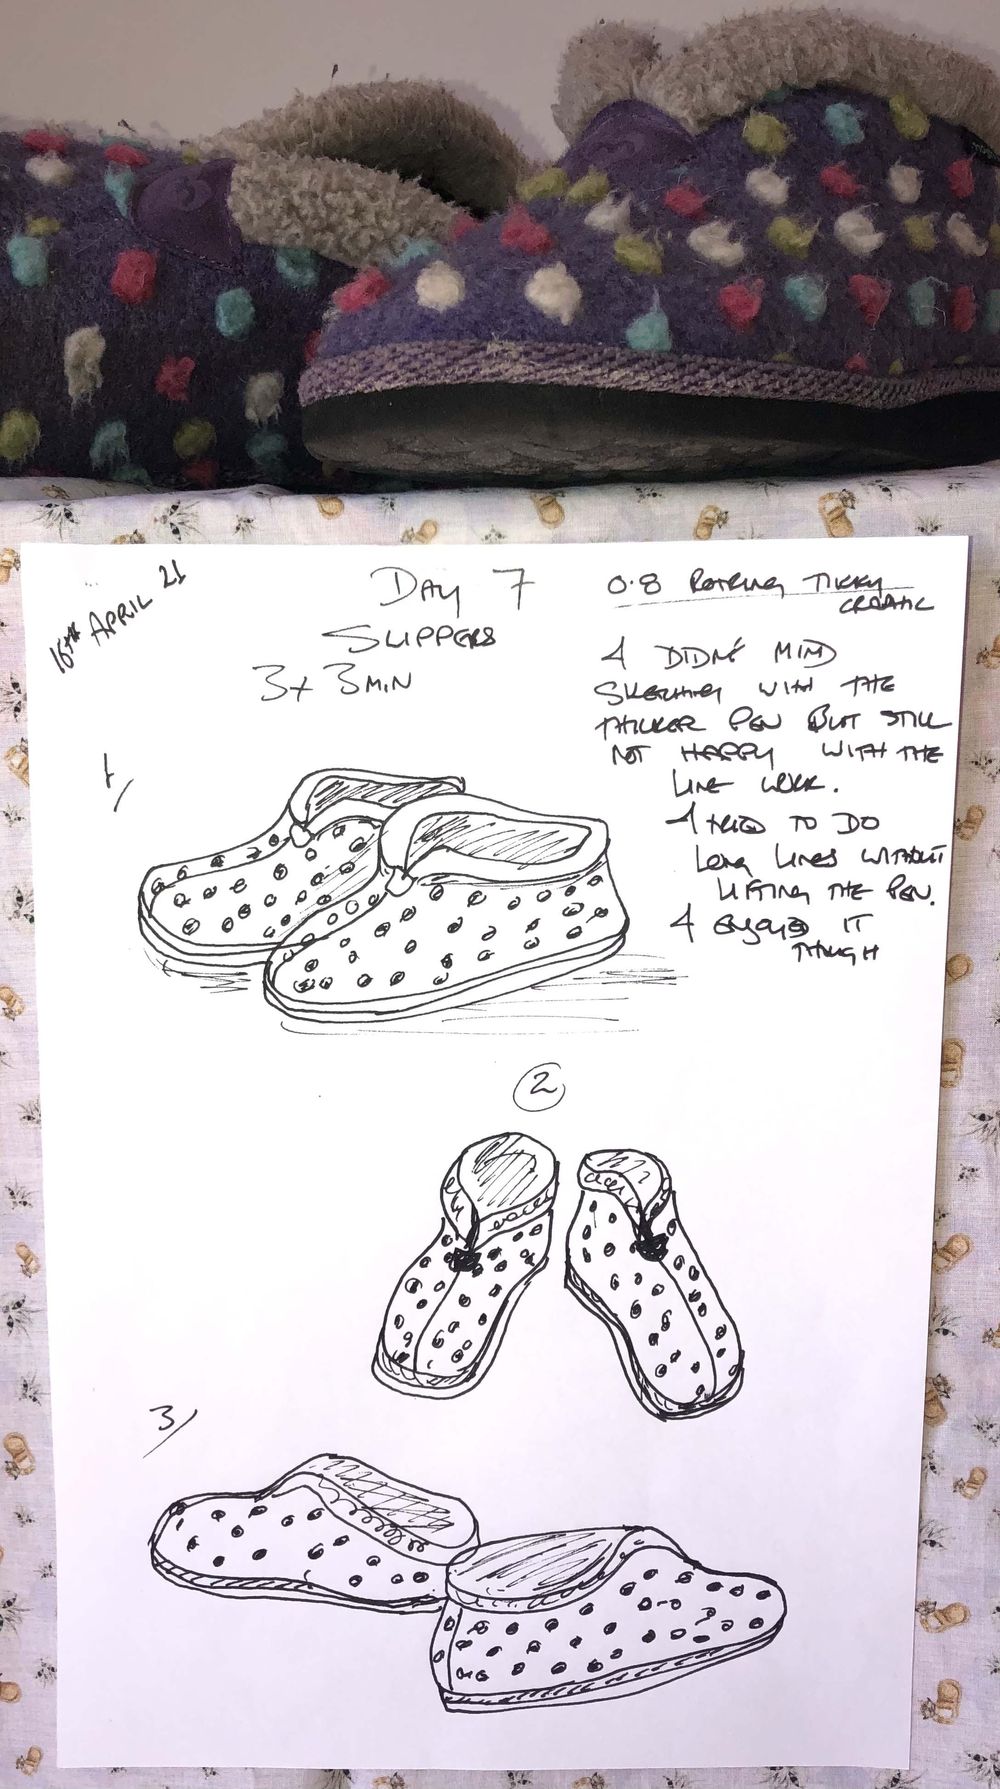 16TH APRIL 21
DAY 7
SLIPPERS
3x 3 MIN
0.8 ROTRING TIKKY
GRAPHIC
I DIDN'T MIND
SKETCHING WITH THE
THICKER PEN BUT STILL
NOT HAPPY WITH THE
LINE WORK.
I TRIED TO DO
LONG LINES WITHOUT
LIFTING THE PEN.
I ENJOYED IT
THOUGH
1/
2
3/